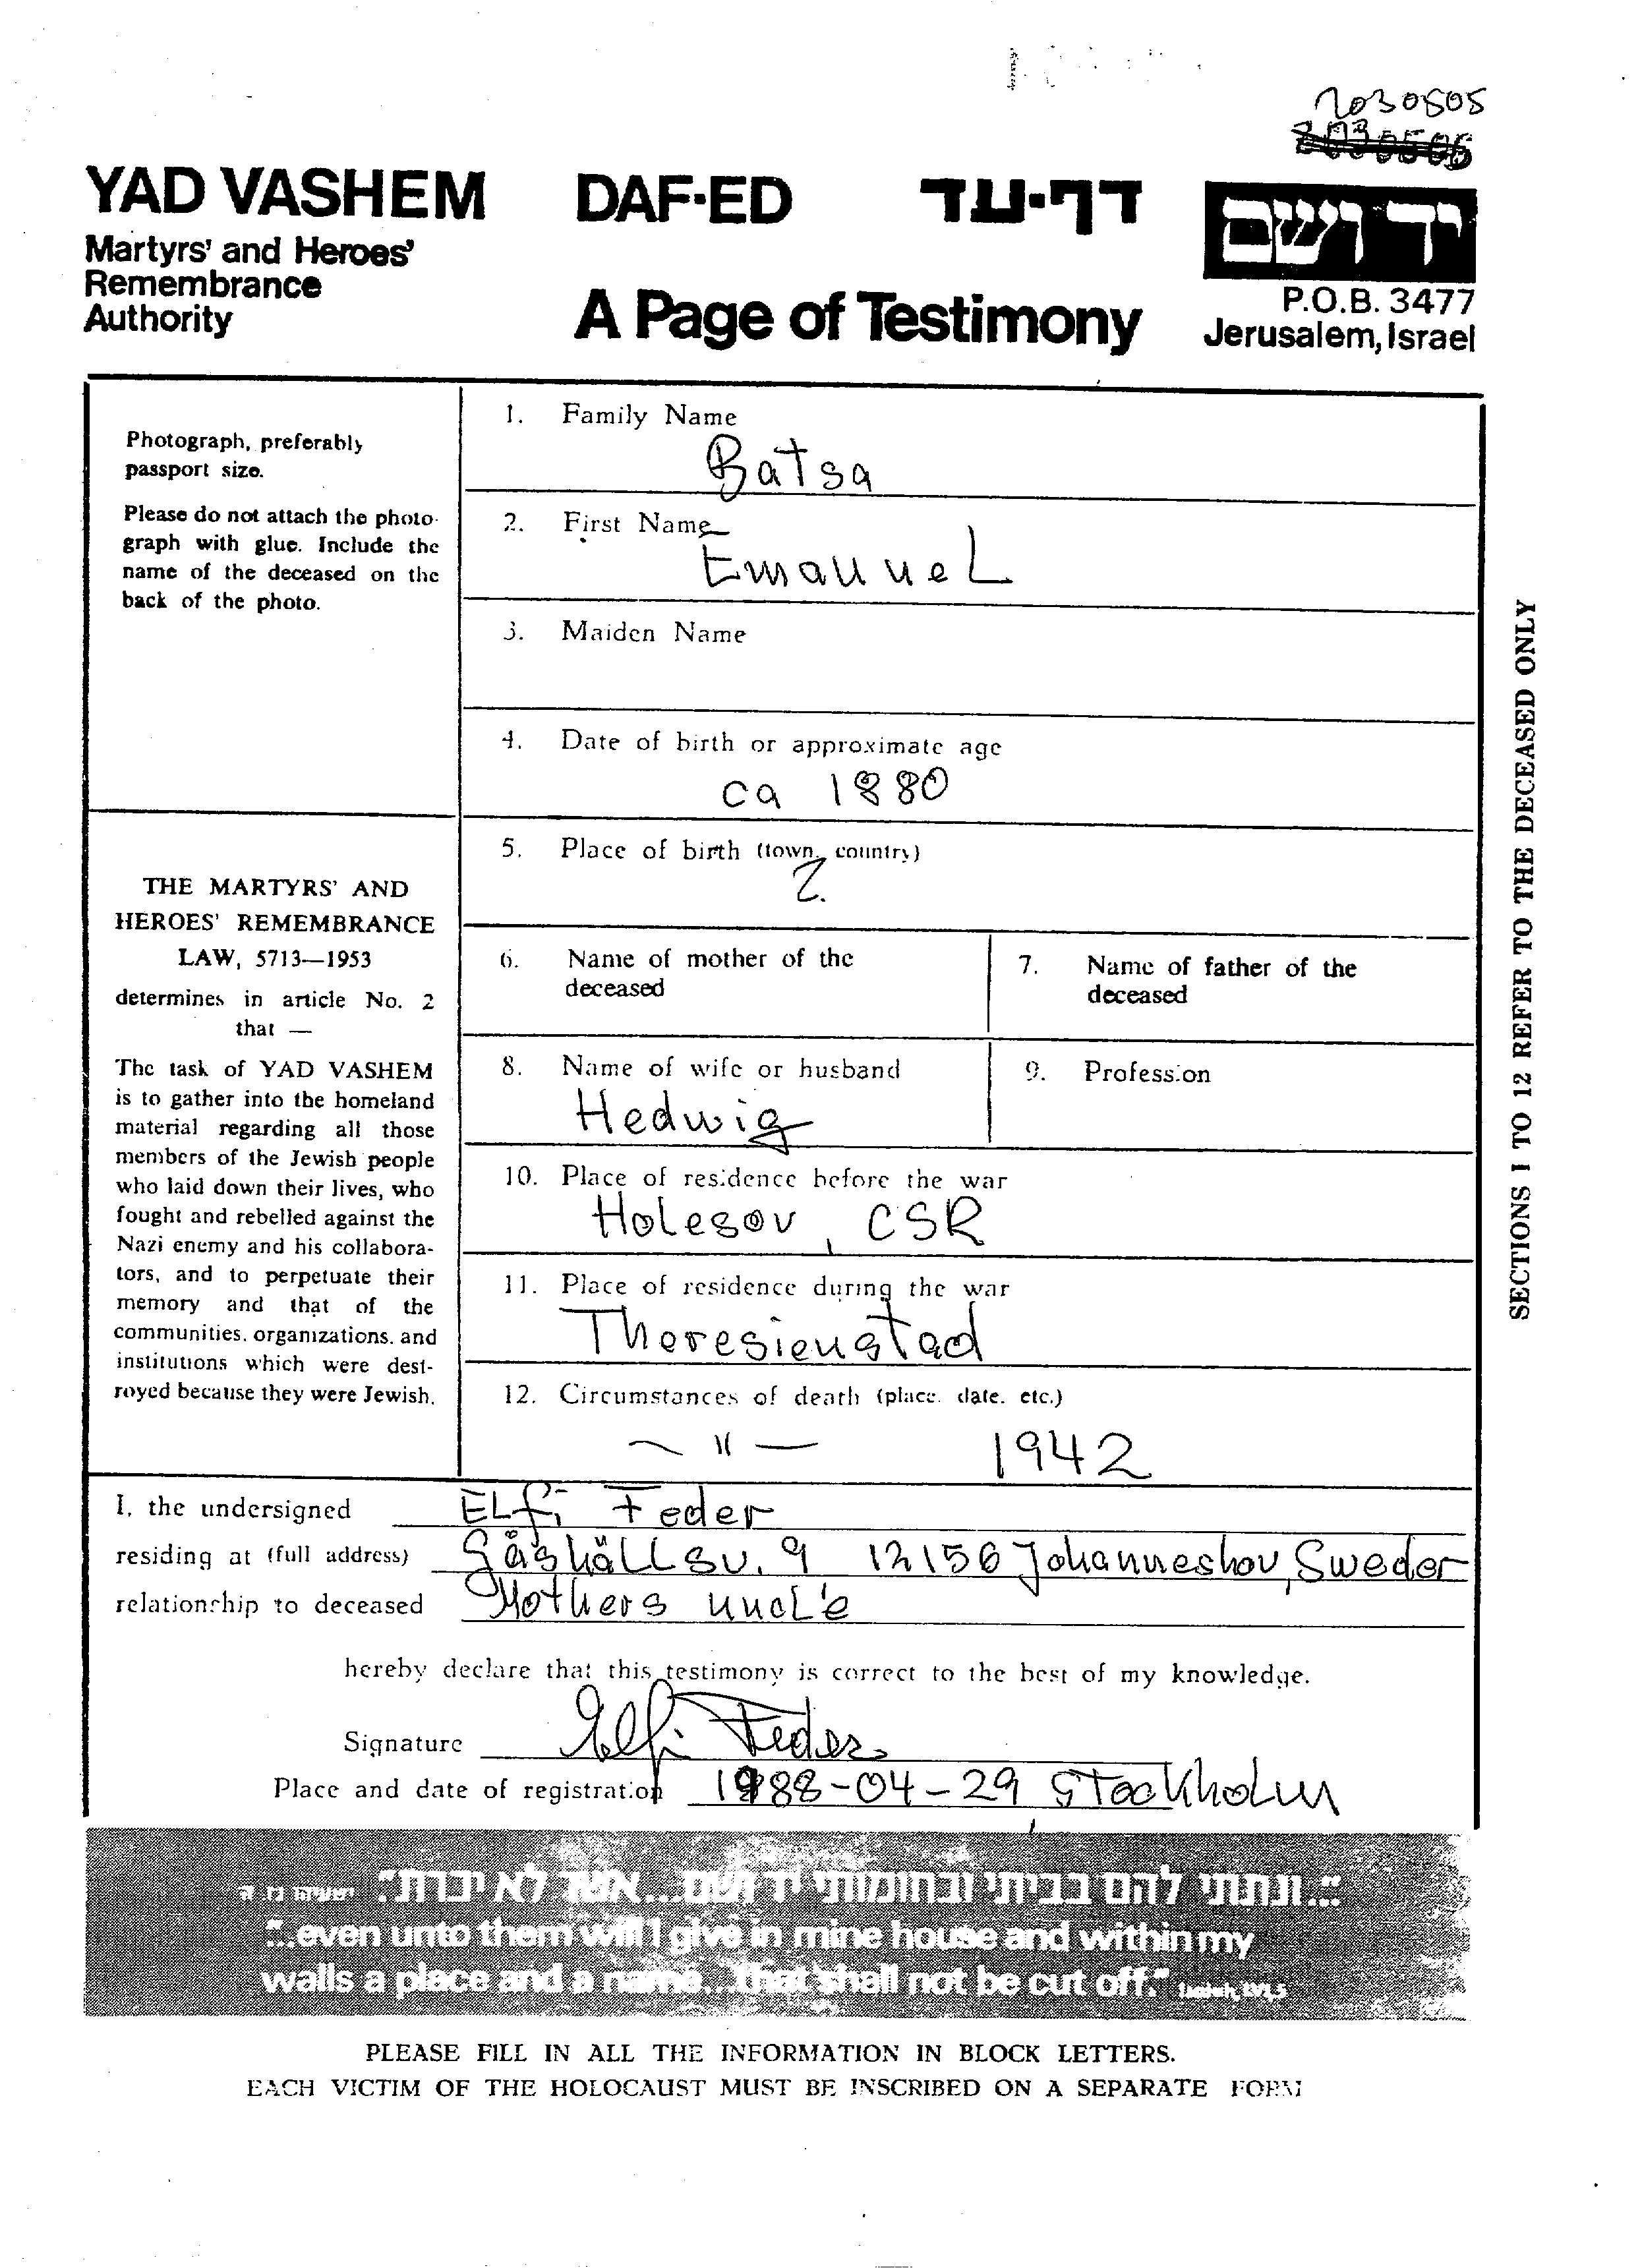 2030505
YAD VASHEM
Martyrs' and Heroes'
Remembrance
Authority
DAF-ED
דף-עד
A Page of Testimony
יד ושם
P.O.B. 3477
Jerusalem, Israel
Photograph, preferably
passport size.
Please do not attach the photo-
graph with glue. Include the
name of the deceased on the
back of the photo.
THE MARTYRS' AND
HEROES' REMEMBRANCE
LAW, 5713—1953
determines in article No. 2
that —
The task of YAD VASHEM
is to gather into the homeland
material regarding all those
members of the Jewish people
who laid down their lives, who
fought and rebelled against the
Nazi enemy and his collabora-
tors, and to perpetuate their
memory and that of the
communities, organizations, and
institutions which were dest-
royed because they were Jewish.
1. Family Name
Batsa
2. First Name
Emanuel
3. Maiden Name
4. Date of birth or approximate age
ca 1880
5. Place of birth (town, country)
?
6. Name of mother of the
deceased
7. Name of father of the
deceased
8. Name of wife or husband
Hedwig
9. Profession
10. Place of residence before the war
Holesov, CSR
11. Place of residence during the war
Theresienstad
12. Circumstances of death (place, date, etc.)
— " — 1942
SECTIONS 1 TO 12 REFER TO THE DECEASED ONLY
I, the undersigned Elfi Feder
residing at (full address) Gåshällsv. 9 12156 Johanneshov, Sweden
relationship to deceased Mothers uncle
hereby declare that this testimony is correct to the best of my knowledge.
Signature Elfi Feder
Place and date of registration 1988-04-29 Stockholm
"...ונתתי להם בביתי ובחומותי יד ושם...אשר לא יכרת" ישעיהו נו ה
"...even unto them will I give in mine house and within my
walls a place and a name...that shall not be cut off." Isaiah, LVI,5
PLEASE FILL IN ALL THE INFORMATION IN BLOCK LETTERS.
EACH VICTIM OF THE HOLOCAUST MUST BE INSCRIBED ON A SEPARATE FORM